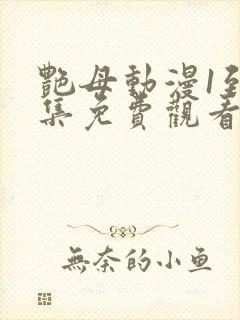 艷母動漫1至
集免費觀看
無奈的小鱼